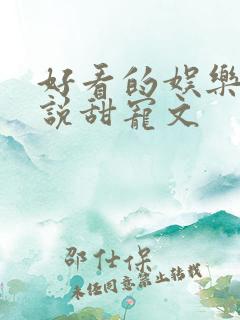 好看的娱樂
說甜寵文
邵仕保
未经同意禁止转载